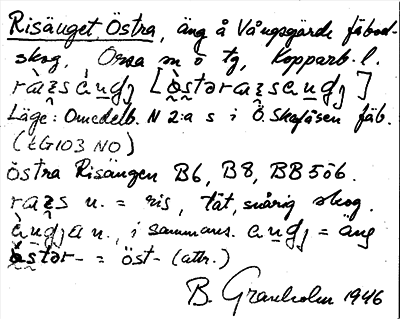 Risänget, Östra, äng å Vångsgärde fäbod-
skog, Orsa sn o tg, Kopparb. l.
ràzsèngj [òstərazsèngj]
Läge: Omedelb. N 2:a s i Ö. Skafåsen fäb.
(LG103 NO)
Östra Risängen B6, B8, BB5ö6.
razs n. = ris, tät, snårig skog.
àngjan, i sammans. angj = äng
östər- = öst- (attr.)
B. Granholm 1946